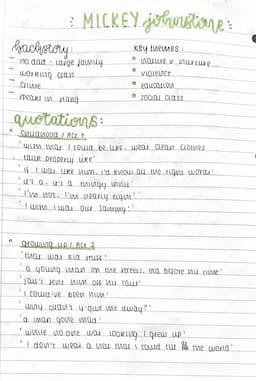 MICKEY johnstone
backstory:
- no dad - large family
- working class
- crime
- speaks in slang
key themes:
• nature v nurture
• violence
• education
• social class
quotations:
• childhood / Act 1
'wish that I could be like, wear clean clothes
talk properly like'
'if I was like him, I'd know all the right words'
'it's a, it's a thingy innit'
'I'm not, I'm nearly eight'
'I wish I was our Sammy'
• growing up / Act 2
'that was kid stuff'
'a young man on the streets, old before his time'
'jail's sent him off his'
'I could've been him'
'why didn't y' give me away?'
'a man gone mad'
'while no one was looking I grew up'
'I don't wear a hat that I could tilt the world'